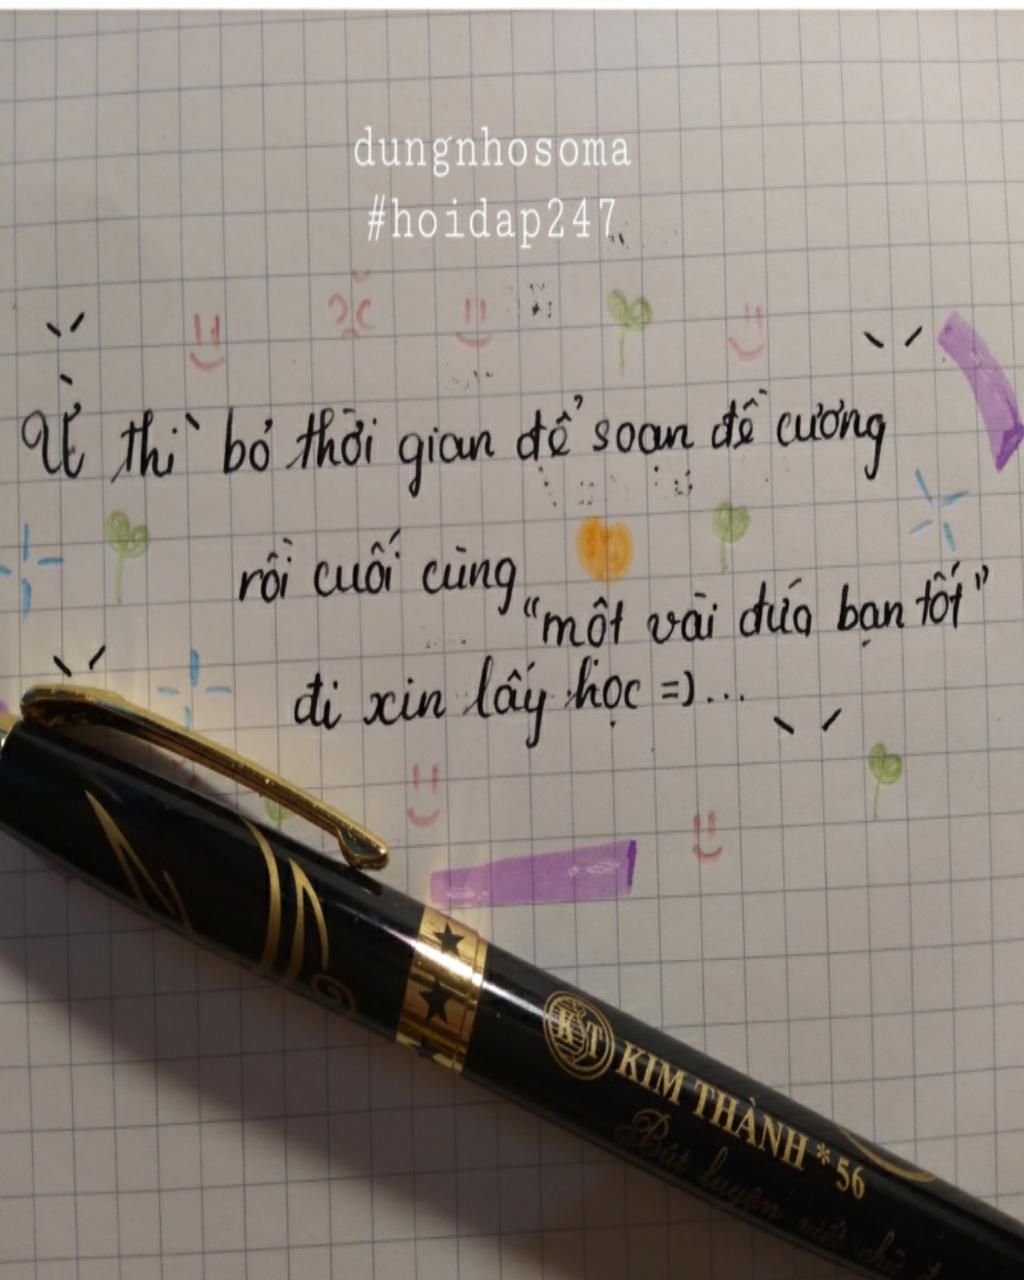 dungnhosoma
#hoidap247
Ừ thì bỏ thời gian để soạn đề cương
rồi cuối cùng
"một vài đứa bạn tốt"
đi xin lấy học =)...
KT KIM THÀNH * 56
Bút luyện viết chữ